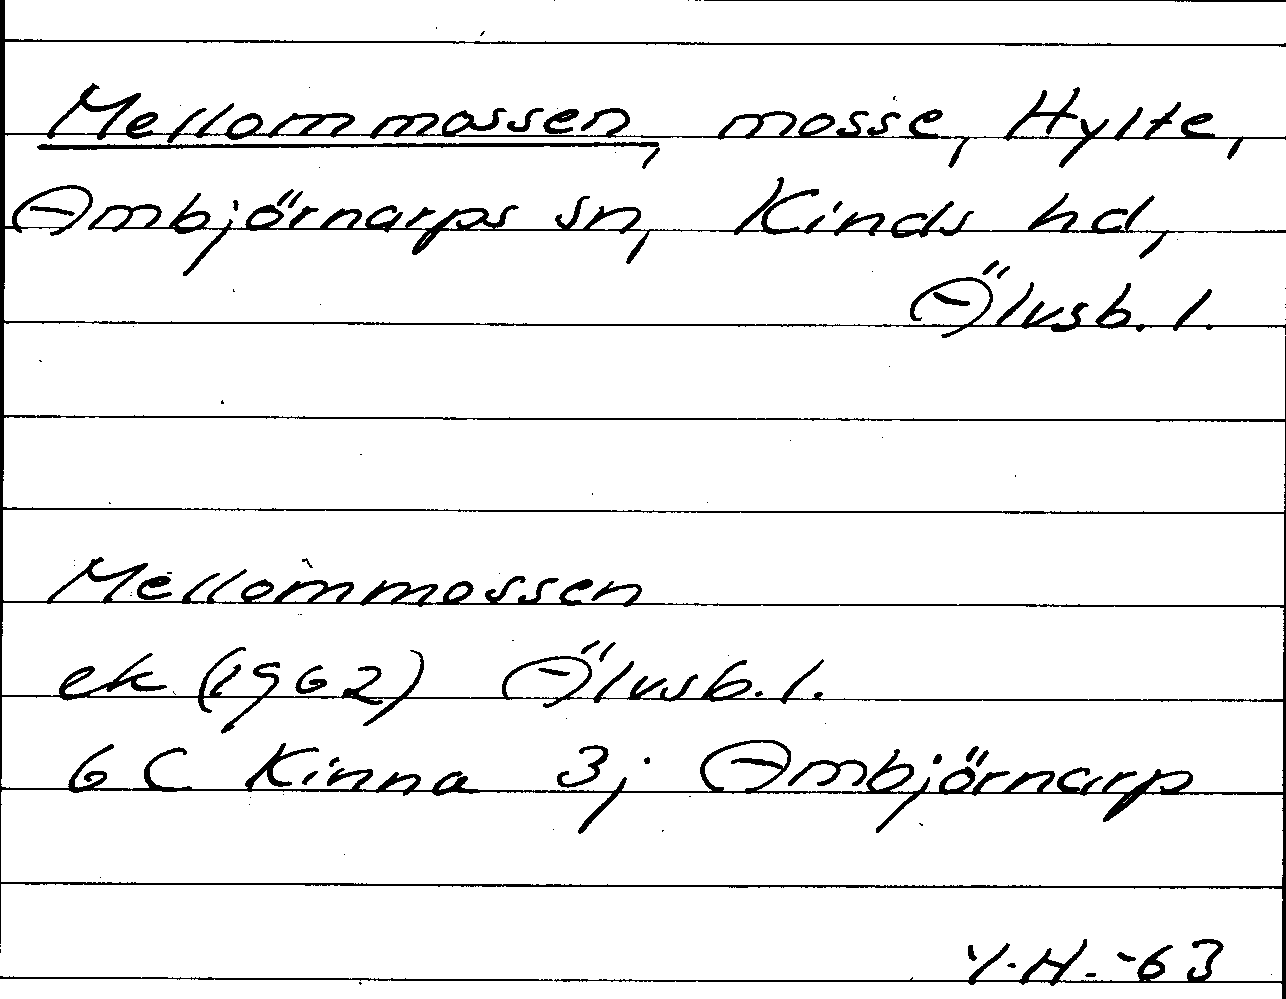 Mellommossen, mosse, Hylte,
Ambjörnarps sn, Kinds hd,
Älvsb. l.
Mellommossen
ek (1962) Älvsb. l.
6 C Kinna 3j Ambjörnarp
Y.H. -63